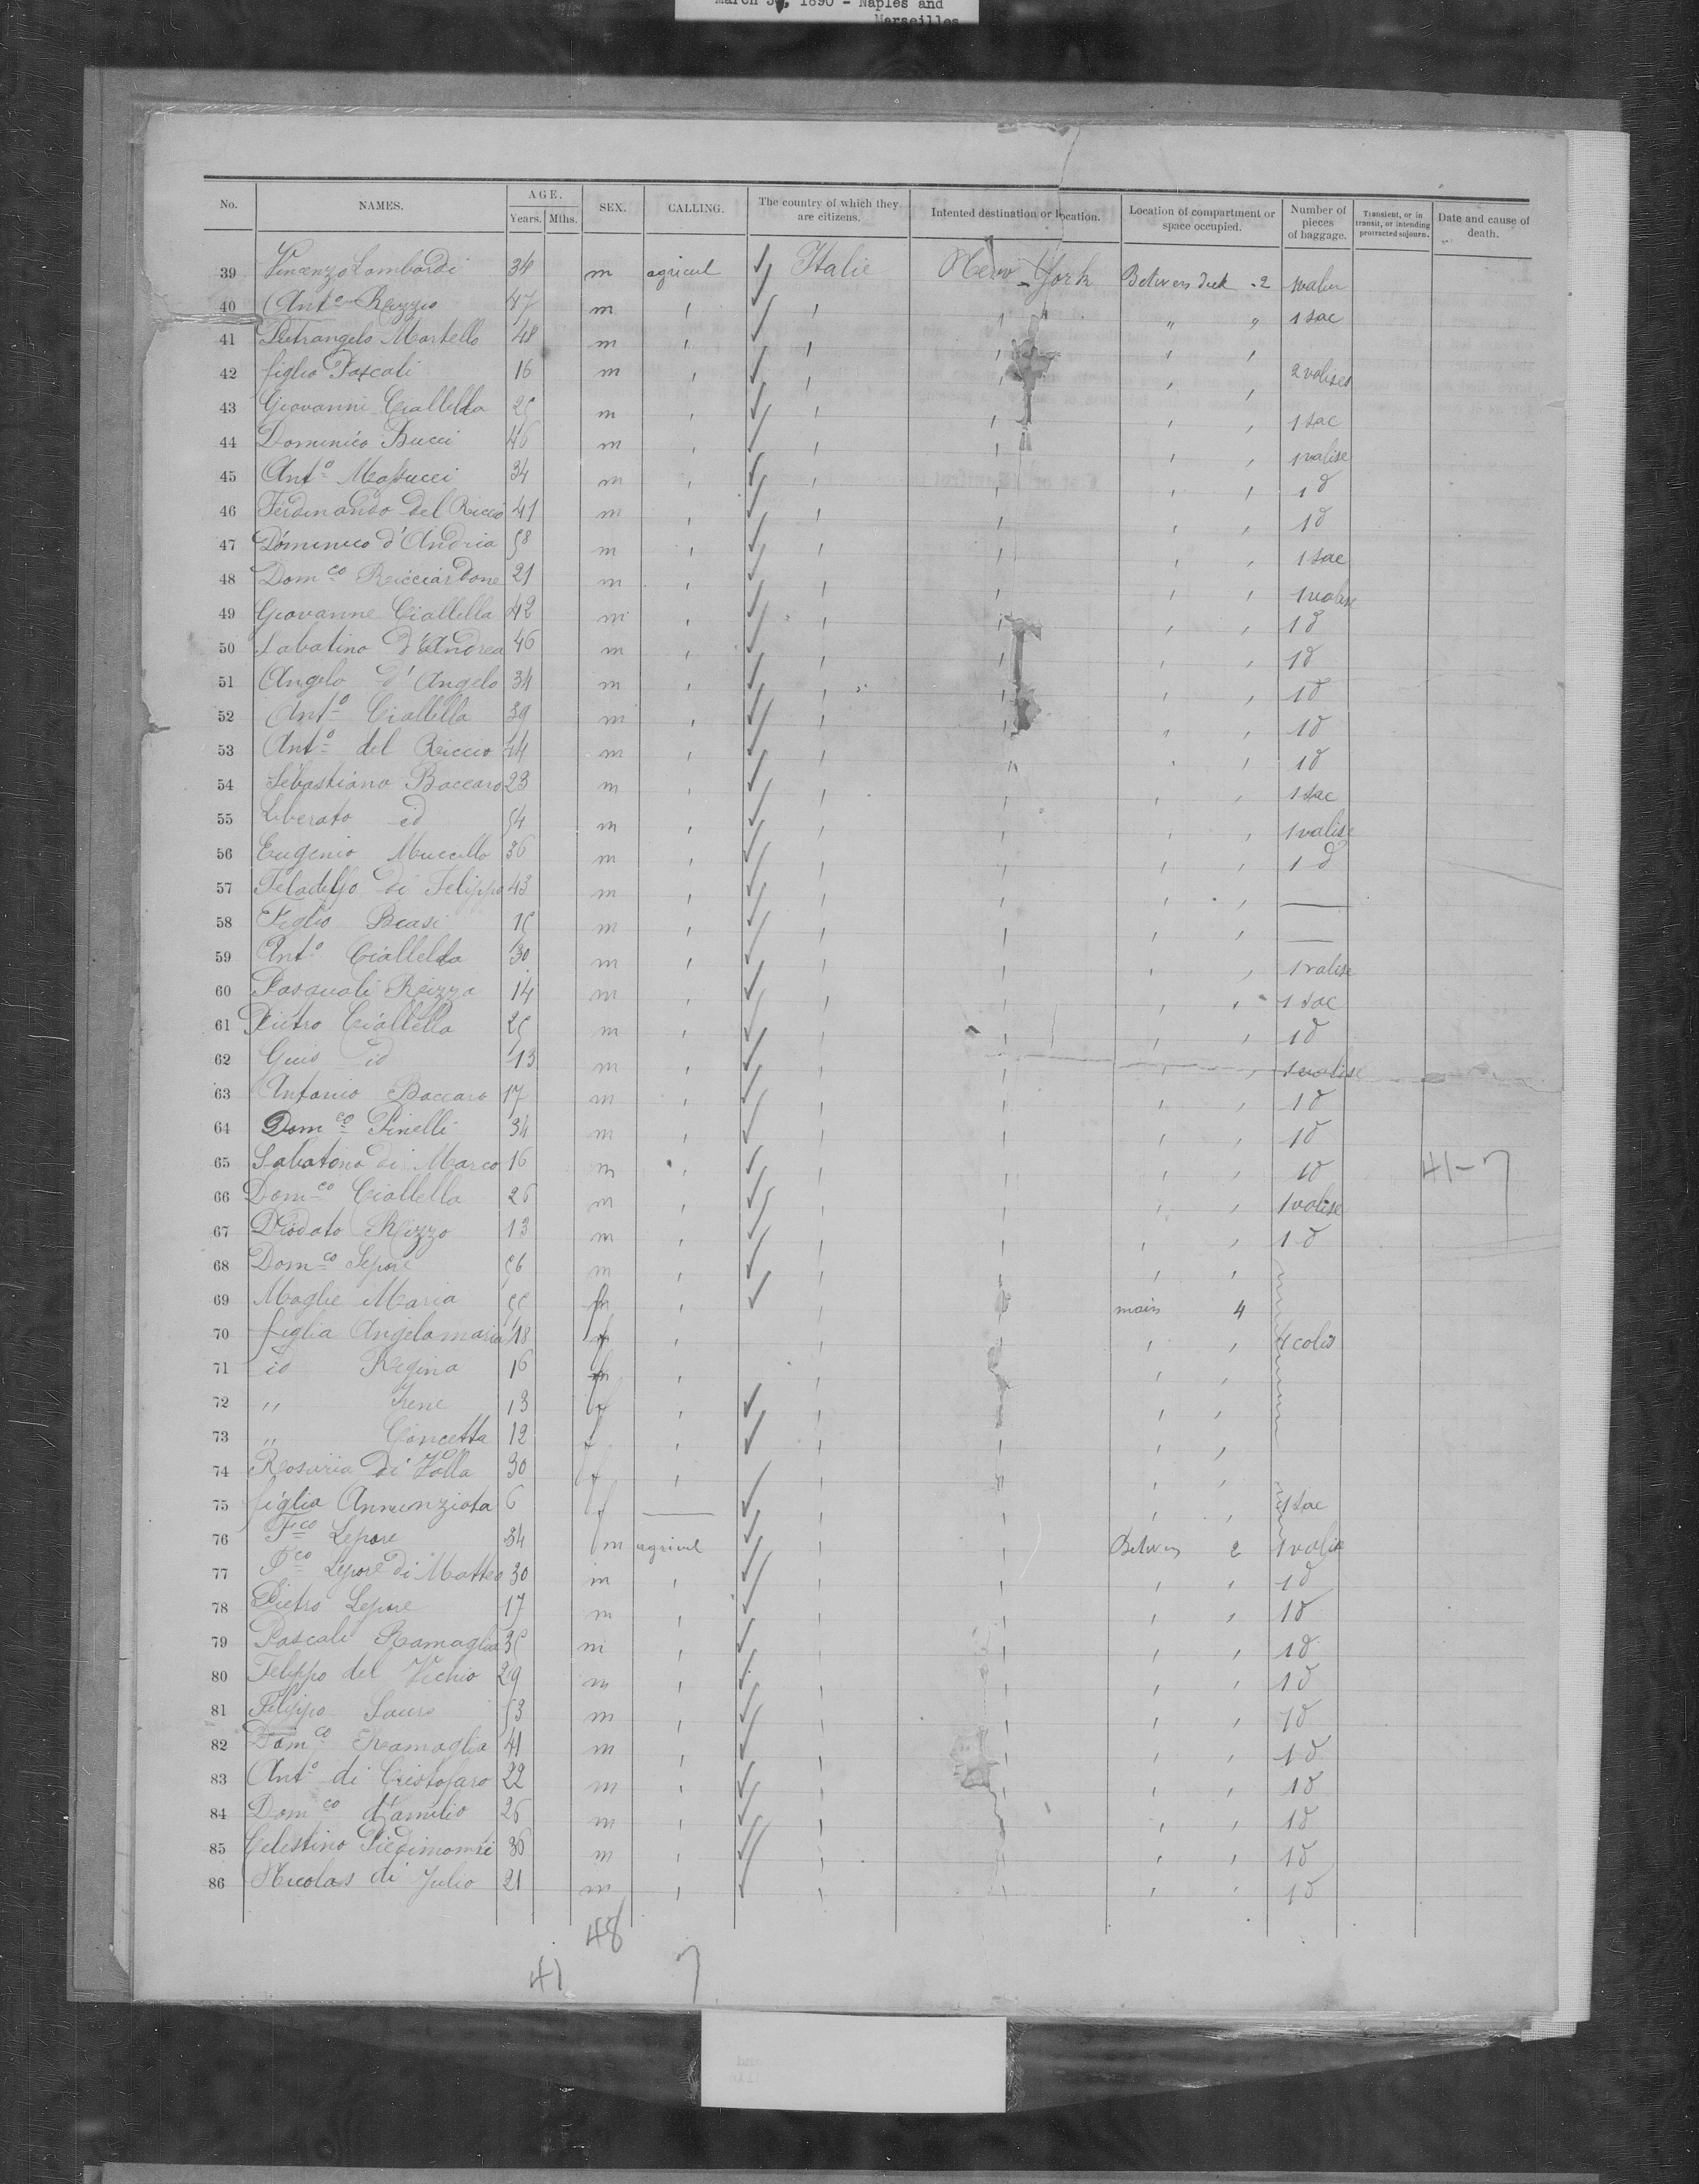 March 3, 1890 - Naples and
Marseilles
No. NAMES. AGE. Years. Mths. SEX. CALLING. The country of which they are citizens. Intented destination or location. Location of compartment or space occupied. Number of pieces of baggage. Transient, or in transit, or intending protracted sojourn. Date and cause of death.
39 Vincenzo Lombardi 34 m agricul ✓ Italie New-York Betwen deck 2
40 Ant.o Rizzo 47 m ' ✓ ' ' " " 1 sac
41 Pietrangelo Martello 48 m ' ✓ ' ' ' '
42 figlio Pascali 16 m ' ✓ ' ' ' 2 valises
43 Giovanni Ciallella 25 m ' ✓ ' ' ' ' 1 sac
44 Dominico Bucci 46 m ' ✓ ' ' ' ' 1 valise
45 Ant.o Massucci 34 m ' ✓ ' ' ' ' 1 d
46 Ferdinando del Riccio 41 m ' ✓ ' ' ' ' 1 d
47 Dominico d'Andria 58 m ' ✓ ' ' ' ' 1 sac
48 Dom.co Ricciardone 21 m ' ✓ ' ' ' ' 1 valise
49 Giovanne Ciallella 42 m ' ✓ ' ' ' ' 1 d
50 Sabatino d'Andrea 46 m ' ✓ ' ' ' ' 1 d
51 Angelo d'Angelo 34 m ' ✓ ' ' ' ' 1 d
52 Ant.o Ciallella 39 m ' ✓ ' ' ' ' 1 d
53 Ant.o del Riccio 44 m ' ✓ ' " ' ' 1 d
54 Sebastiano Baccaro 23 m ' ✓ ' ' ' ' 1 sac
55 Liberato id 54 m ' ✓ ' ' ' ' 1 valise
56 Eugenio Muccillo 36 m ' ✓ ' ' ' ' 1 d
57 Feladelfo di Felippo 43 m ' ✓ ' ' ' ' —
58 Figlio Biasi 15 m ' ✓ ' ' ' ' —
59 Ant.o Ciallella 30 m ' ✓ ' ' ' ' 1 valise
60 Pasquali Rizzo 14 m ' ✓ ' ' ' ' 1 sac
61 Pietro Ciallella 25 m ' ✓ ' ' ' ' 1 d
62 id 13 m ' ✓ ' ' ' ' 1 valise
63 Antonio Baccaro 17 m ' ✓ ' ' ' ' 1 d
64 Dom.co Pinelli 34 m ' ✓ ' ' ' ' 1 d
65 Sabatono di Marco 16 m ' ✓ ' ' ' ' 1 d 41-7
66 Dom.co Ciallella 26 m ' ✓ ' ' ' ' 1 valise
67 Diodato Rizzo 13 m ' ✓ ' ' ' ' 1 d
68 Dom.co Lepore 56 m ' ✓ ' ' ' '
69 Maglie Maria 55 f ' ✓ ' ' main 4
70 figlia Angelamaria 18 f ' ' ' ' ' 4 colis
71 id Regina 16 f ' ' ' ' '
72 " Irene 13 f ' ✓ ' ' ' '
73 " Concetta 12 f ' ✓ ' ' ' '
74 Rosaria di Zolla 30 f ' ✓ ' ' ' '
75 figlia Annunziata 6 f — ✓ ' ' ' ' 1 sac
76 Lepore 34 m agricul ✓ ' ' Betwen 2 1 valise
77 Lepore di Matteo 30 m ' ✓ ' ' ' ' 1 d
78 Pietro Lepore 17 m ' ✓ ' ' ' ' 1 d
79 Pascale Ramaglia 35 m ' ✓ ' ' ' ' 1 d
80 Felippo del Vechio 29 m ' ✓ ' ' ' ' 1 d
81 Filippo Sauro 53 m ' ✓ ' ' ' ' 1 d
82 Dom.co Ramaglia 41 m ' ✓ ' ' ' 1 d
83 Ant.o di Cristofaro 22 m ' ✓ ' ' ' 1 d
84 Dom.co d'Amilio 26 m ' ✓ ' ' ' ' 1 d
85 Celestino Piedimonti 36 m ' ✓ ' ' ' ' 1 d
86 Nicolas di Julio 21 m ' ✓ ' ' ' ' 1 d
48
41 7